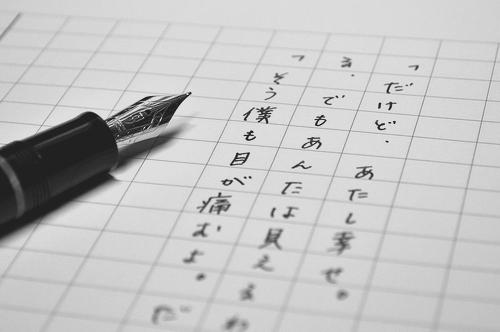 「だけど、あたし幸せ。
る。でもあんたは見えるわ
「そう僕も目が痛むよ。だ